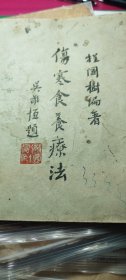 程國樹編著
傷寒食養療法
吳承恒題